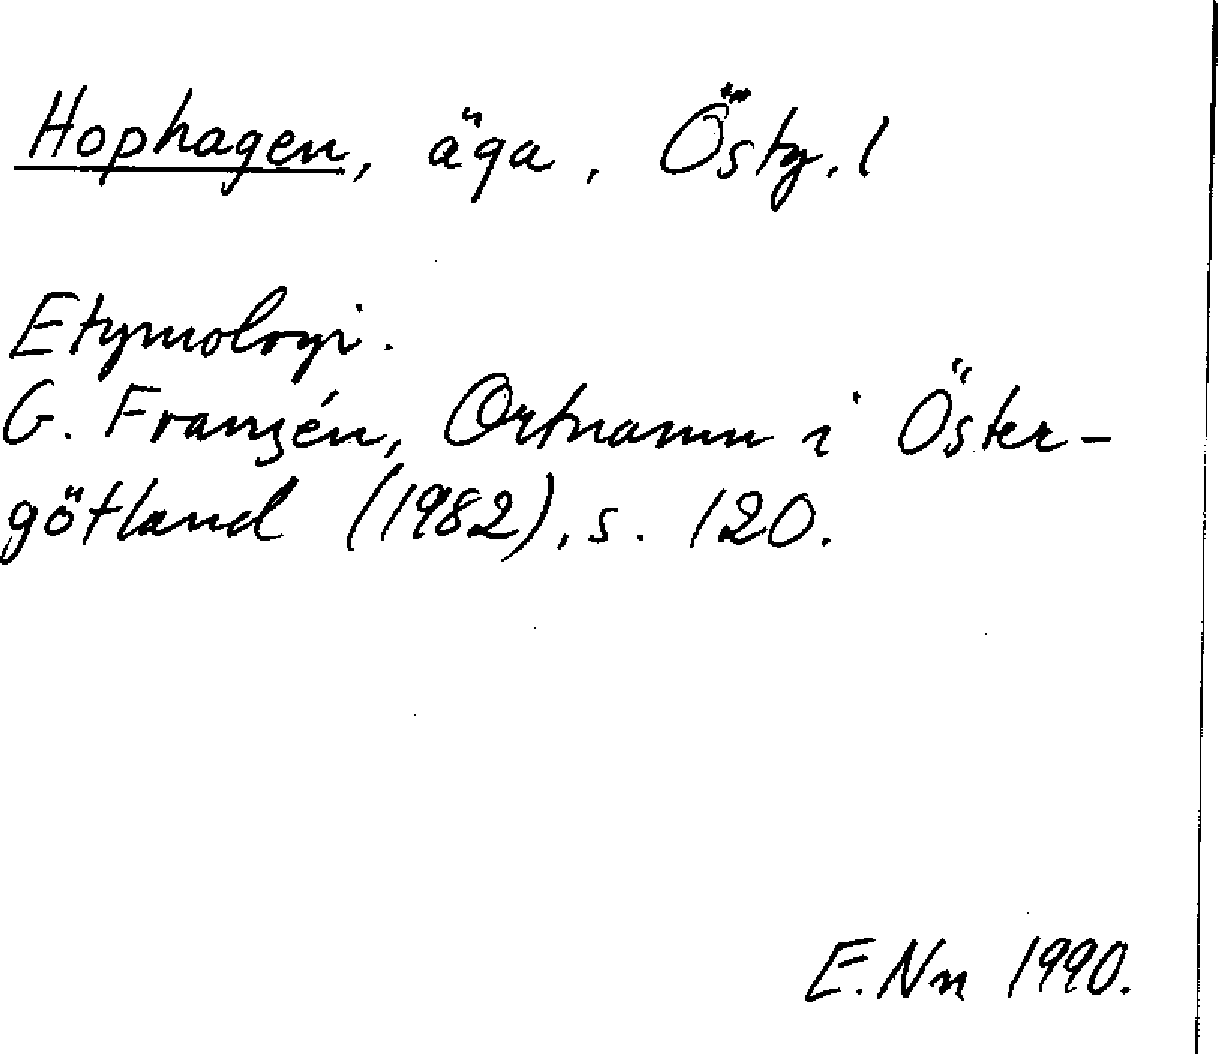 Hophagen, äga, Östg. l
Etymologi.
G. Franzén, Ortnamn i Öster-
götland (1982), s. 120.
E.Nn 1990.